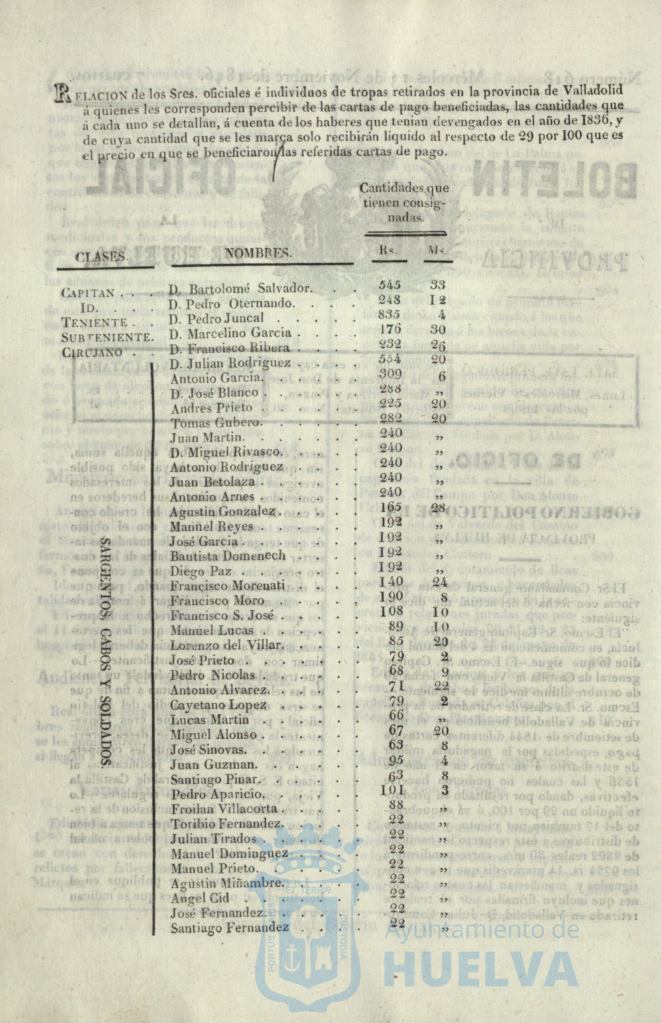 RELACION de los Sres. oficiales é individuos de tropas retirados en la provincia de Valladolid
á quienes les corresponden percibir de las cartas de pago beneficiadas, las cantidades que
á cada uno se detallan, á cuenta de los haberes que tenian devengados en el año de 1836, y
de cuya cantidad que se les marca solo recibirán líquido al respecto de 29 por 100 que es
el precio en que se beneficiaron las referidas cartas de pago.
Cantidades que
tienen consig-
nadas.
CLASES. NOMBRES. Rs. Ms.
CAPITAN . . . D. Bartolomé Salvador. . . 545 33
ID. . . . . D. Pedro Oternando. . . . 248 12
TENIENTE . . D. Pedro Juncal . . . . . 835 4
SUBTENIENTE. D. Marcelino Garcia . . . . 176 30
CIRUJANO . . D. Francisco Ribera . . . . 232 26
SARGENTOS, CABOS Y SOLDADOS.
D. Julian Rodriguez . . . . 554 20
Antonio Garcia. . . . . . 309 6
D. José Blanco . . . . . 288 „
Andres Prieto . . . . . . 225 20
Tomas Gubero. . . . . . 282 20
Juan Martin. . . . . . . 240 „
D. Miguel Rivasco. . . . . 240 „
Antonio Rodriguez . . . . 240 „
Juan Betolaza . . . . . . 240 „
Antonio Arnes . . . . . . 240 „
Agustin Gonzalez . . . . . 165 28
Manuel Reyes . . . . . . 192 „
José Garcia . . . . . . . 192 „
Bautista Domenech . . . . 192 „
Diego Paz . . . . . . . 192 „
Francisco Morenati . . . . 140 24
Francisco Moro . . . . . 190 8
Francisco S. José . . . . . 108 10
Manuel Lucas . . . . . . 89 10
Lorenzo del Villar. . . . . 85 20
José Prieto . . . . . . . 79 2
Pedro Nicolas . . . . . . 68 9
Antonio Alvarez. . . . . . 71 22
Cayetano Lopez . . . . . 79 2
Lucas Martin . . . . . . 66 „
Miguel Alonso . . . . . . 67 20
José Sinovas. . . . . . . 63 8
Juan Guzman. . . . . . . 95 4
Santiago Pinar. . . . . . 63 8
Pedro Aparicio. . . . . . 101 3
Froilan Villacorta . . . . . 88 „
Toribio Fernandez. . . . . 22 „
Julian Tirados . . . . . . 22 „
Manuel Dominguez . . . . 22 „
Manuel Prieto. . . . . . 22 „
Agustin Miñambre. . . . . 22 „
Angel Cid . . . . . . . 22 „
José Fernandez. . . . . . 22 „
Santiago Fernandez . . . . 22 „
Ayuntamiento de
HUELVA